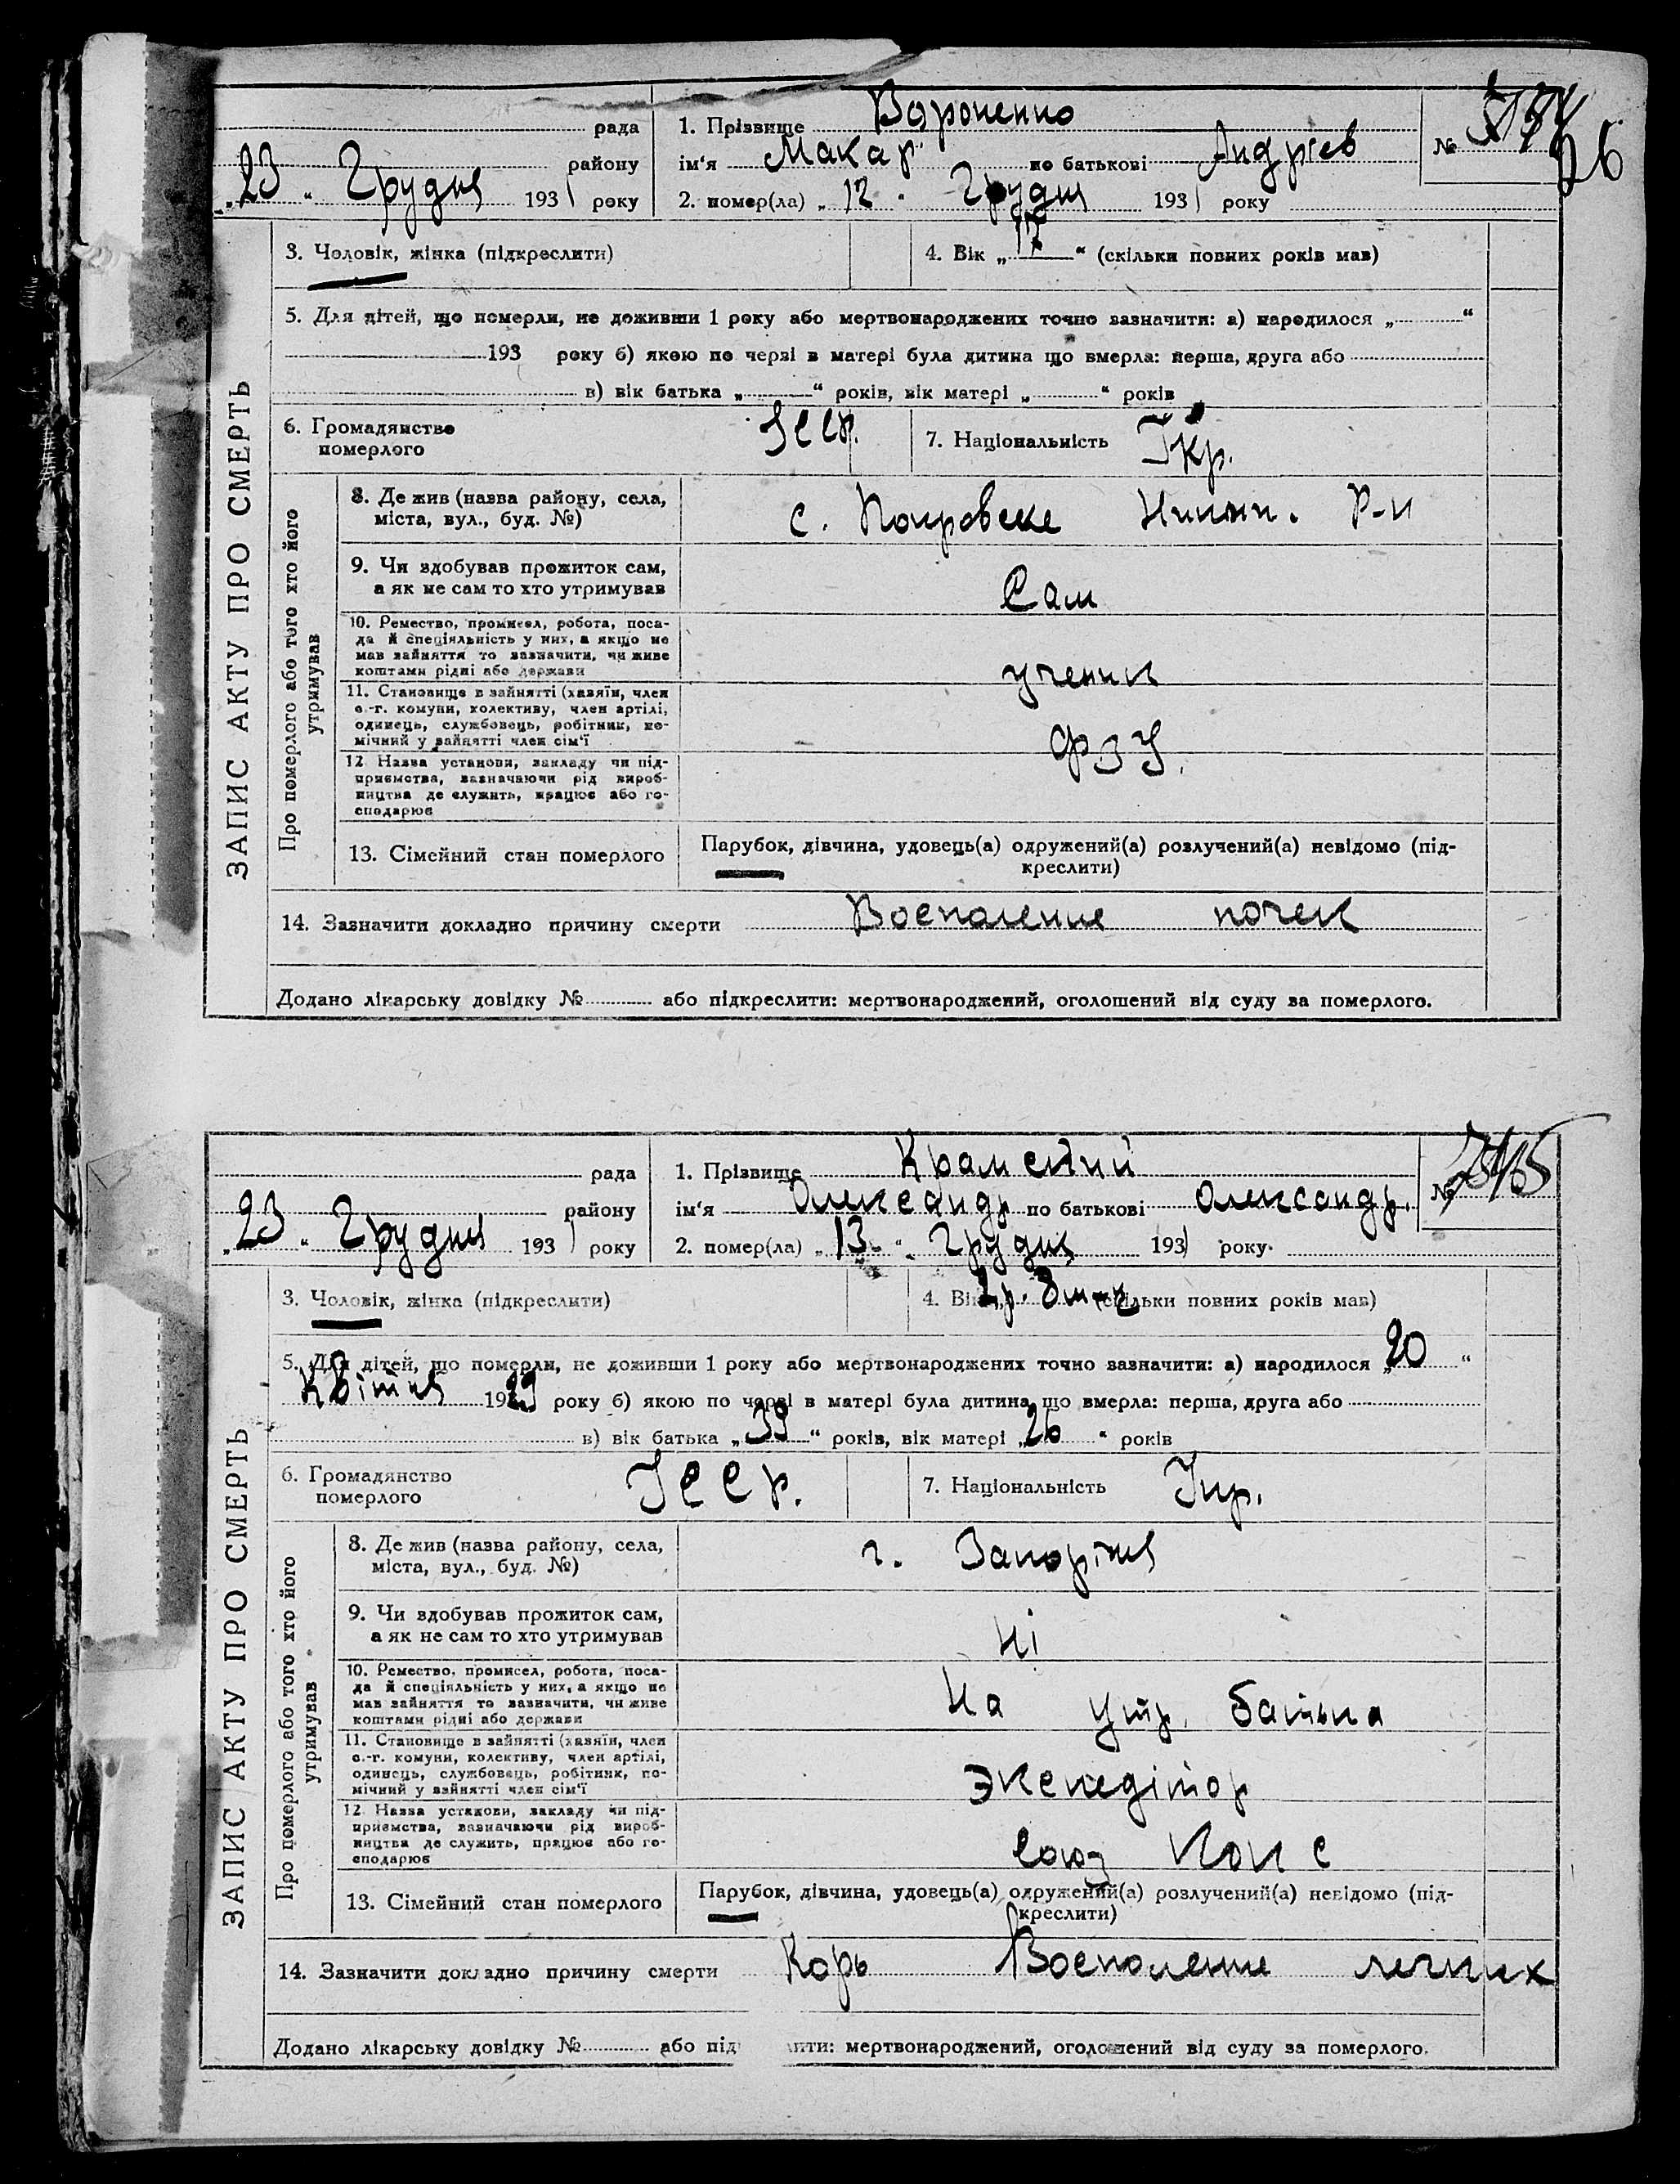 Вороненко
рада 1. Прізвище
Макар Андрієв
району ім'я по батькові №
„23“ Грудня 1931 року 2. помер(ла) „12“ Грудня 1931 року
26
3. Чоловік, жінка (підкреслити) 4. Вік „17“ (скільки повних років мав)
5. Для дітей, що померли, не доживши 1 року або мертвонароджених точно зазначити: а) народилося „ “
193 року б) якою по черзі в матері була дитина що вмерла: перша, друга або
в) вік батька „ “ років, вік матері „ “ років
6. Громадянство померлого УССР. 7. Національність Укр.
ЗАПИС АКТУ ПРО СМЕРТЬ
Про померлого або того хто його утримував
8. Де жив (назва району, села,
міста, вул., буд. №)
с. Покровске Р-н
9. Чи здобував прожиток сам,
а як не сам то хто утримував
Сам
10. Ремество, промисел, робота, поса-
да й спеціяльність у них, а якщо не
мав зайняття то зазначити, чи живе
коштами рідні або держави
ученик
11. Становище в зайнятті (хазяїн, член
с.-г. комуни, колективу, член артілі,
одинець, службовець, робітник, по-
мічний у зайнятті член сім'ї
ФЗУ.
12 Назва установи, закладу чи під-
приємства, зазначаючи рід вироб-
ництва де служить, працює або го-
сподарює
13. Сімейний стан померлого
Парубок, дівчина, удовець(а) одружений(а) розлучений(а) невідомо (під-
креслити)
14. Зазначити докладно причину смерти Воспаление почек
Додано лікарську довідку № або підкреслити: мертвонароджений, оголошений від суду за померлого.
рада 1. Прізвище Крамський
району ім'я Олександр по батькові Олександр. № 7545
„23“ Грудня 1931 року 2. помер(ла) „13“ Грудня 1931 року
3. Чоловік, жінка (підкреслити) 4. Вік 2р. 8м-ц (скільки повних років мав)
5. Для дітей, що померли, не доживши 1 року або мертвонароджених точно зазначити: а) народилося „20“
Квітня 1929 року б) якою по черзі в матері була дитина що вмерла: перша, друга або
в) вік батька „39“ років, вік матері „26“ років
6. Громадянство померлого УССР. 7. Національність Укр.
ЗАПИС АКТУ ПРО СМЕРТЬ
Про померлого або того хто його утримував
8. Де жив (назва району, села,
міста, вул., буд. №)
г. Запоріжя
9. Чи здобував прожиток сам,
а як не сам то хто утримував
Ні
10. Ремество, промисел, робота, поса-
да й спеціяльність у них, а якщо не
мав зайняття то зазначити, чи живе
коштами рідні або держави
На утр. батька
11. Становище в зайнятті (хазяїн, член
с.-г. комуни, колективу, член артілі,
одинець, службовець, робітник, по-
мічний у зайнятті член сім'ї
Экспедітор
12 Назва установи, закладу чи під-
приємства, зазначаючи рід вироб-
ництва де служить, працює або го-
сподарює
Союз
13. Сімейний стан померлого
Парубок, дівчина, удовець(а) одружений(а) розлучений(а) невідомо (під-
креслити)
14. Зазначити докладно причину смерти Корь Воспаление легких
Додано лікарську довідку № або під ити: мертвонароджений, оголошений від суду за померлого.